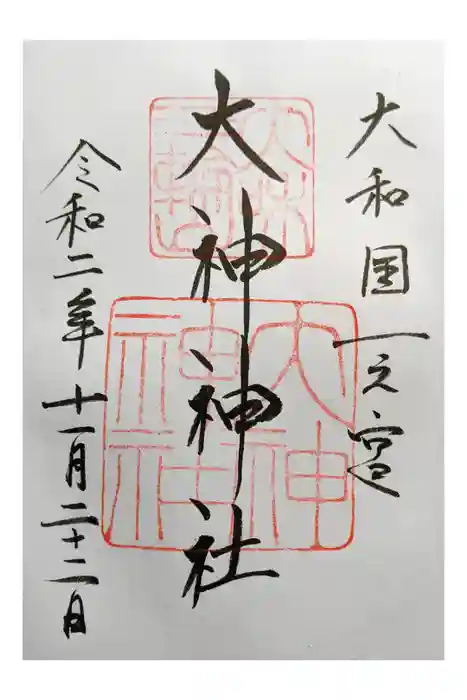 大和国一之宮
大神神社
令和二年十一月二十二日
大神神社